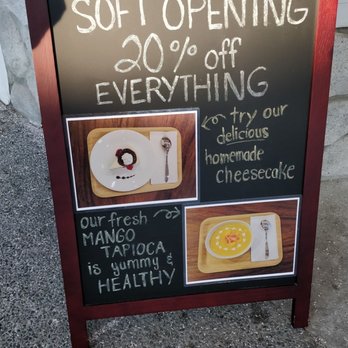 SOFT OPENING
20% off
EVERYTHING
try our
delicious
homemade
cheesecake
our fresh
MANGO
TAPIOCA
is yummy &
HEALTHY